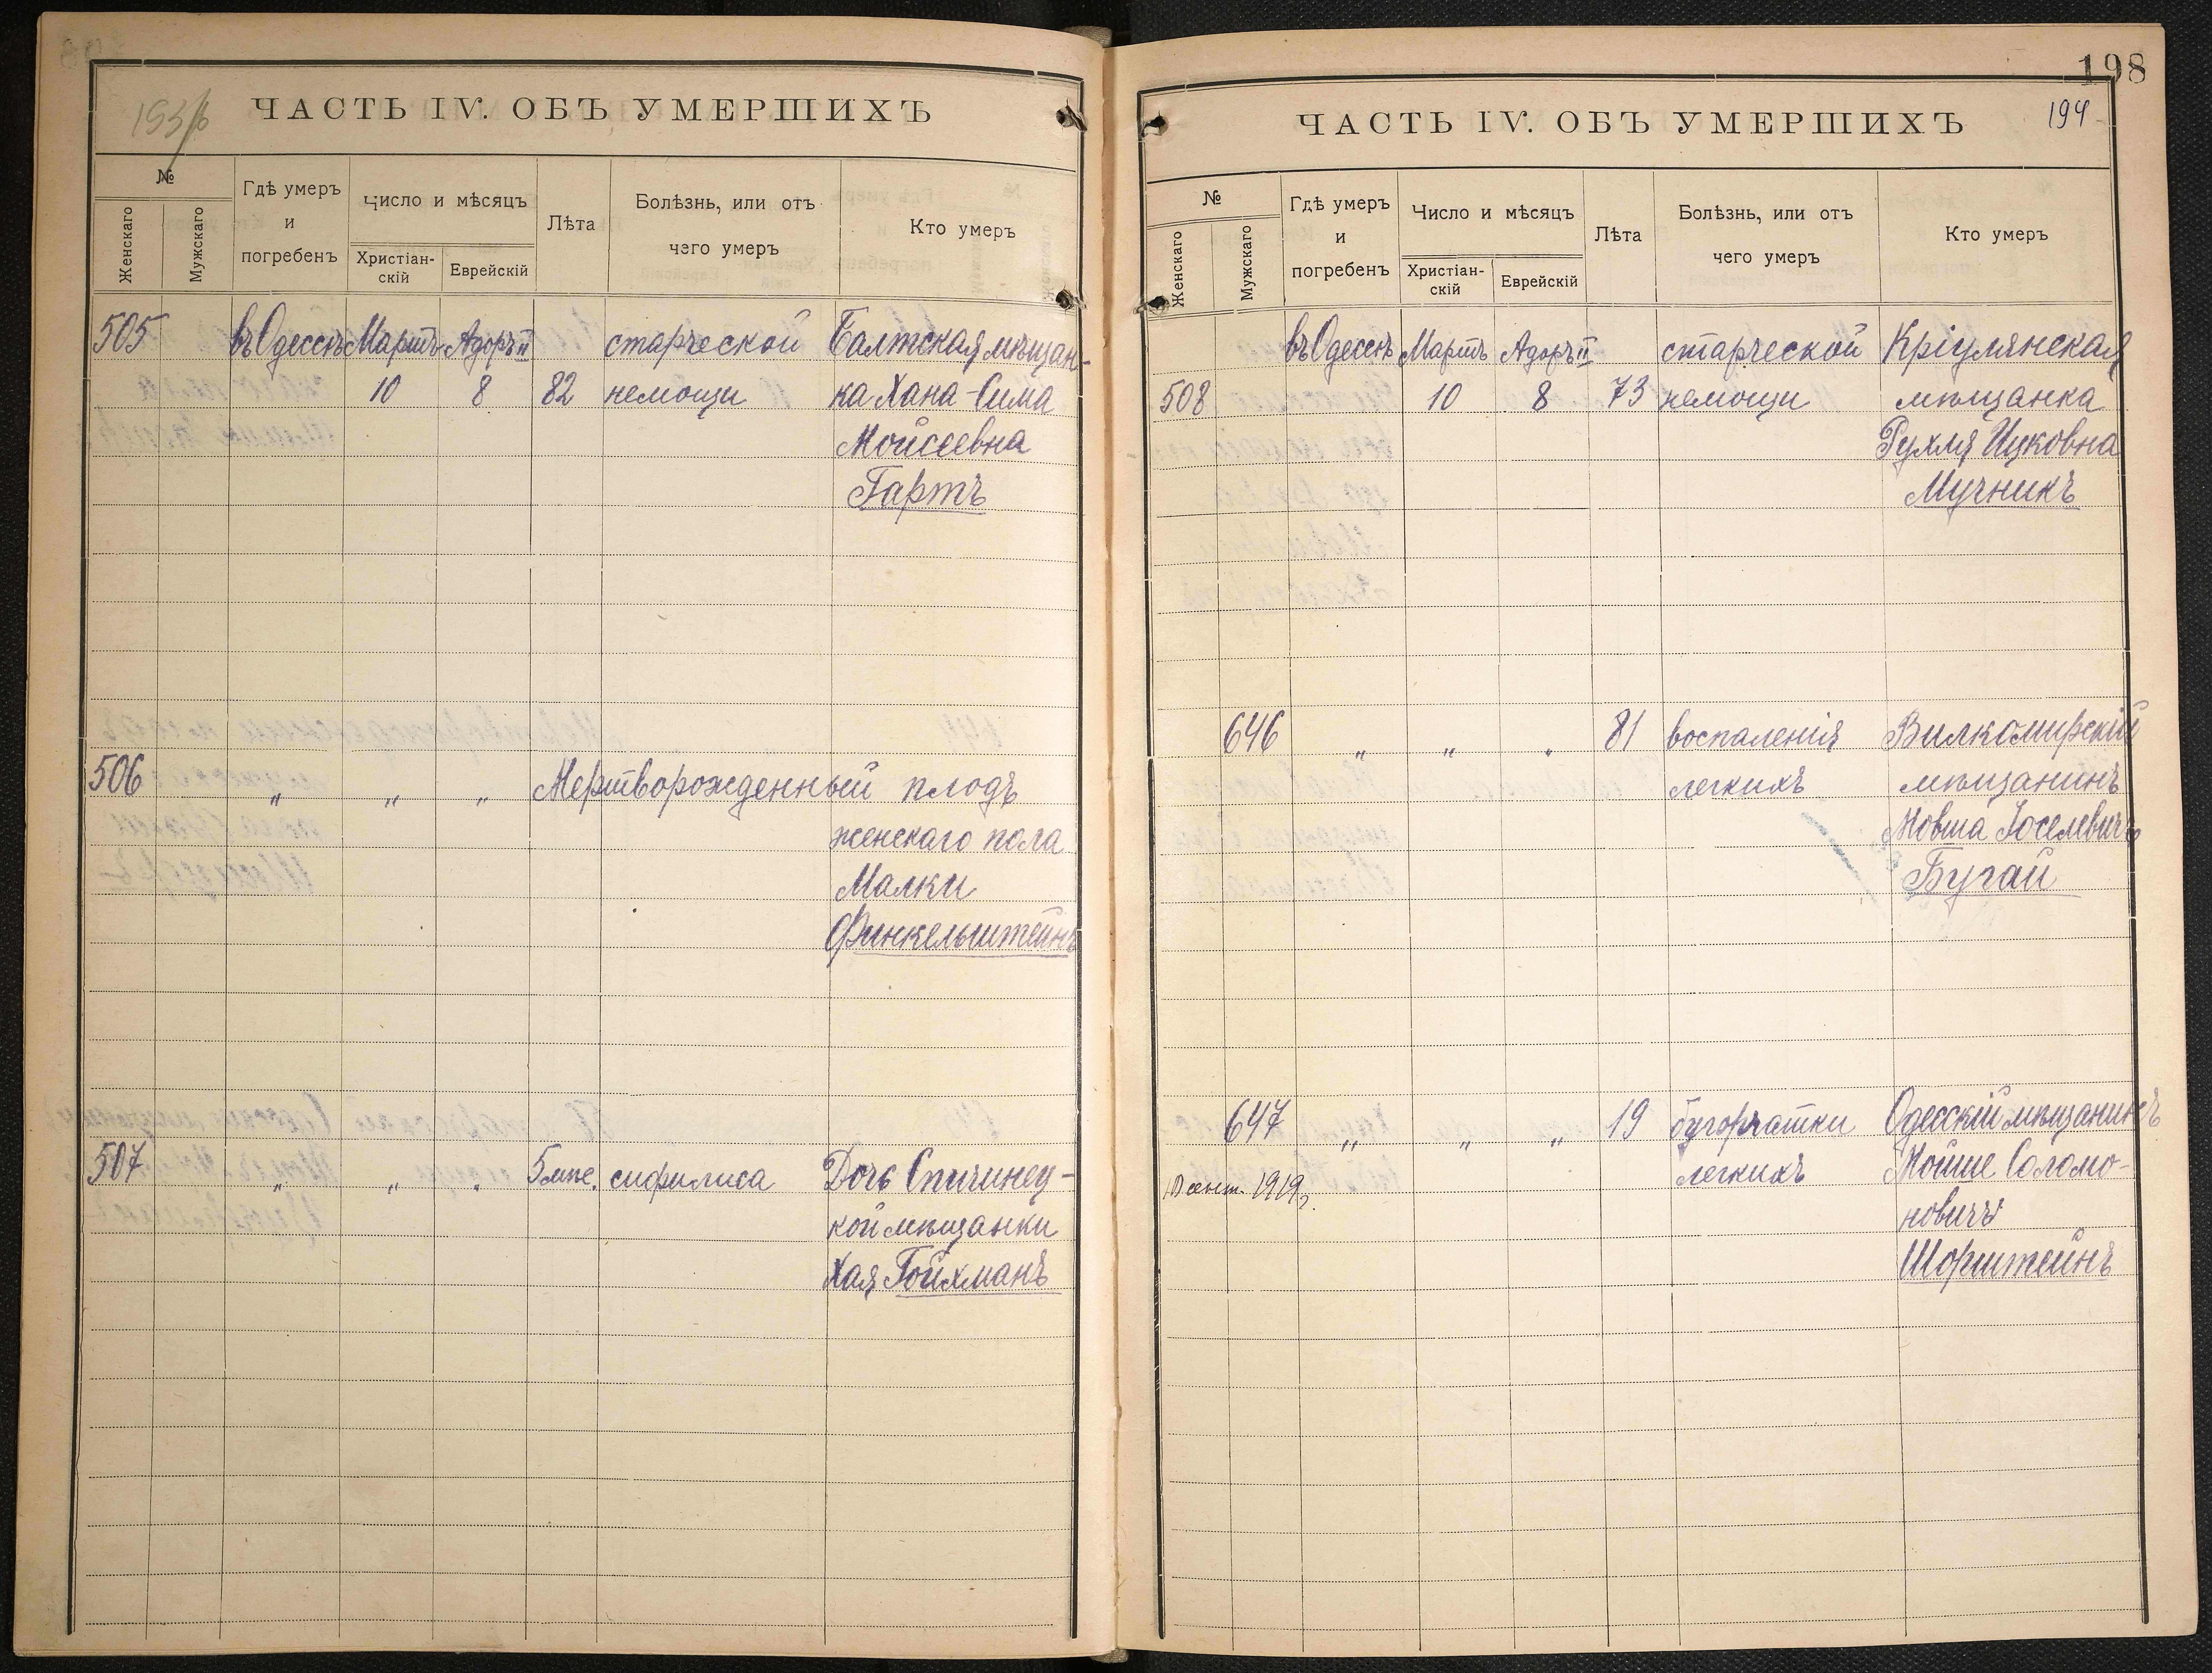 193/б
ЧАСТЬ IV. ОБЪ УМЕРШИХЪ
№
Женскаго
Мужскаго
Гдѣ умеръ
и
погребенъ
Число и мѣсяцъ
Христіан-
скій
Еврейскій
Лѣта
Болѣзнь, или отъ
чего умеръ
Кто умеръ
505 въ Одессѣ Мартъ Адоръ II старческой Балтская мѣщан-
10 8 82 немощи ка Хана-Сима
Мойсеевна
Гартъ
506 " " " Мертворожденный плодъ
женскаго пола
Малки
Финкельштейнъ
507 " " " 5 мѣс. сифилиса Дочь Спичинец-
кой мѣщанки
Хая Гойхманъ
198
ЧАСТЬ IV. ОБЪ УМЕРШИХЪ 194
№
Женскаго
Мужскаго
Гдѣ умеръ
и
погребенъ
Число и мѣсяцъ
Христіан-
скій
Еврейскій
Лѣта
Болѣзнь, или отъ
чего умеръ
Кто умеръ
въ Одессѣ Мартъ Адоръ II старческой Кріулянская
508 10 8 73 немощи мѣщанка
Рухля Ицковна
Мучникъ
646 " " " 81 воспаленія Вилкомирскій
легкихъ мѣщанинъ
Мовша Іоселевичъ
Бугай
647 " " " 19 бугорчатки Одесскій мѣщанинъ
легкихъ Мойше Соломо-
10 сент. 1919 г.
новичъ
Шорштейнъ